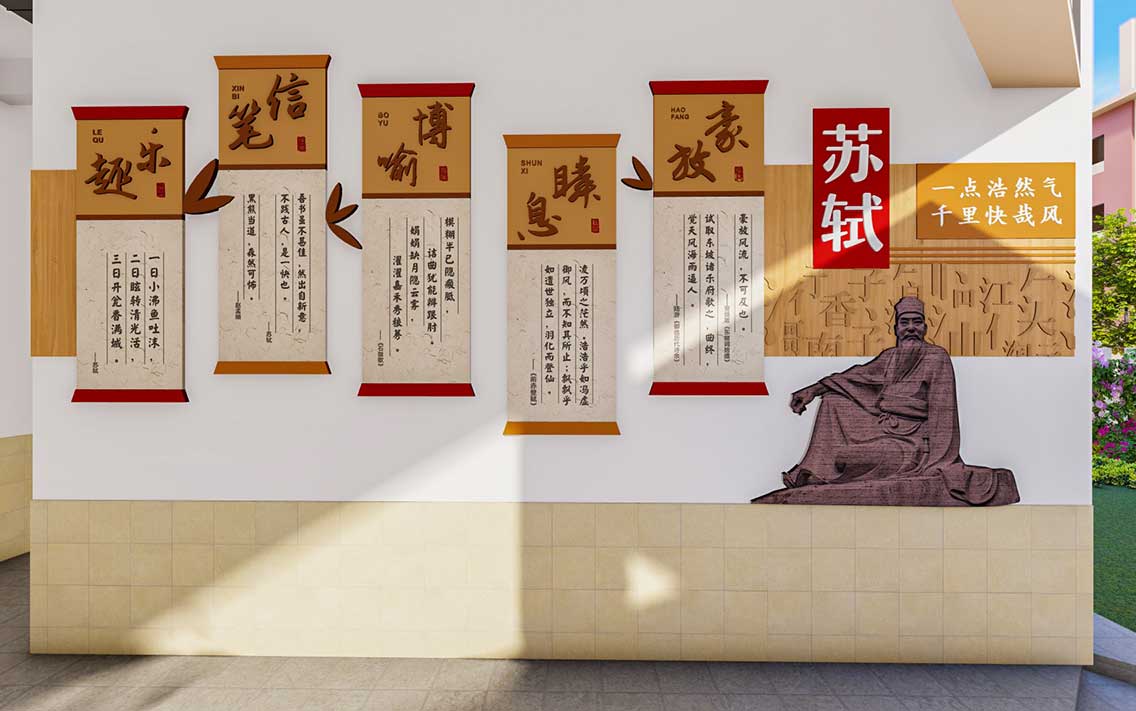 苏轼
一点浩然气
千里快哉风
HAO
FANG
豪放
豪放风流，不可及也。
试取东坡诸乐府歌之，曲终，
觉天风海雨逼人。
SHUN
XI
瞬息
凌万顷之茫然。浩浩乎如冯虚
御风，而不知其所止；飘飘乎
如遗世独立，羽化而登仙。
——《前赤壁赋》
BO
YU
博喻
模糊半已隐瘢胝，
诘曲犹能辨跟肘。
娟娟缺月隐云雾，
濯濯嘉禾秀稂莠。
——《石鼓歌》
XIN
BI
信笔
吾书虽不甚佳，然出自新意，
不践古人，是一快也。
——苏轼
黑熊当道，森然可怖。
——赵孟頫
LE
QU
乐趣
一日小沸鱼吐沫，
二日眩转清光活，
三日开瓮香满城。
——苏轼